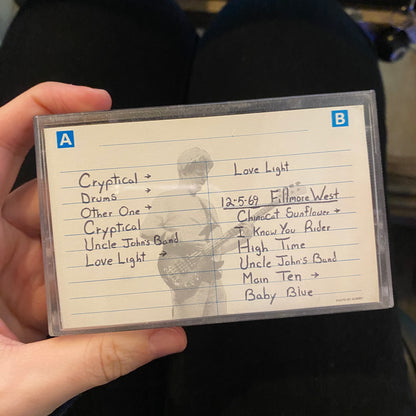 A
B
Cryptical →
Drums →
Other One →
Cryptical
Uncle John's Band
Love Light →
Love Light
12-5-69 Fillmore West
Chinacat Sunflower →
I Know You Rider
High Time
Uncle John's Band
Main Ten →
Baby Blue